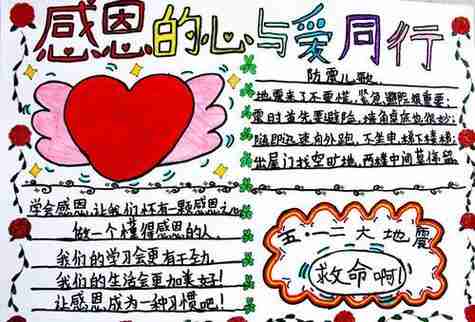 感恩的心与爱同行
防震儿歌
地震来了不要慌,紧急避险很重要;
震时首先要避险,墙角桌底也很妙;
随即迅速向外跑,不坐电梯下楼梯;
出屋门找空旷地,两楼中间莫停留
学会感恩,让我们怀有一颗感恩之心
做一个懂得感恩的人
我们的学习会更有
我们的生活会更加美好!
让感恩成为一种习惯吧!
五一二大地震
救命啊!